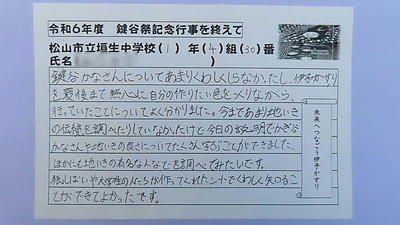 令和6年度 鍵谷祭記念行事を終えて
松山市立垣生中学校(1)年(4)組(30)番
氏名
鍵谷かなさんについてあまりくわしくしらなかったし、伊予かすり
を最後まで熱心に自分の作りたい色をつくりながら、
行っていたことについてよく分かりました。今まであまり地いき
の伝統を調べたりしていなかったけど今日の説明でかぎ谷
かなさんや地いきの良さについてたくさん学ぶことができました。
ほかにも地いきの有名な人などを調べてみたいです。
や大学性の人たちが作ってくれたシートでくわしく知ること
ができてよかったです。
未来へつなごう伊予かすり